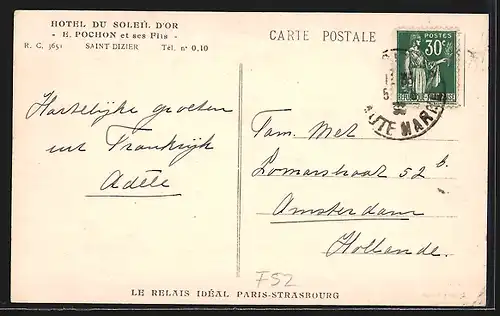 HOTEL DU SOLEIL D'OR
- E. POCHON et ses Fils -
R. C. 3651 SAINT-DIZIER Tél. n° 0.10
CARTE POSTALE
POSTES
30c
Hartelijke groeten
uit Frankrijk
Adèle
Fam. Met
Lomanstraat 52 b.
Amsterdam
Hollande.
F52
LE RELAIS IDÉAL PARIS-STRASBOURG